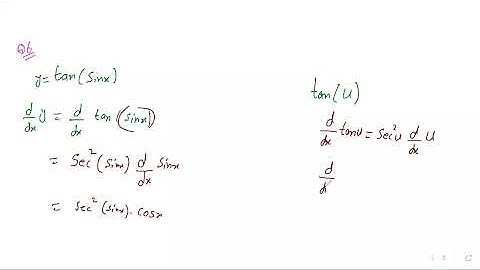 Q6
y = tan(Sinx)
d/dx y = d/dx tan(sinx)
= Sec²(Sinx) d/dx Sinx
= Sec²(Sinx) . Cosx
tan(U)
d/dx tanu = Sec²u d/dx U
d/dx